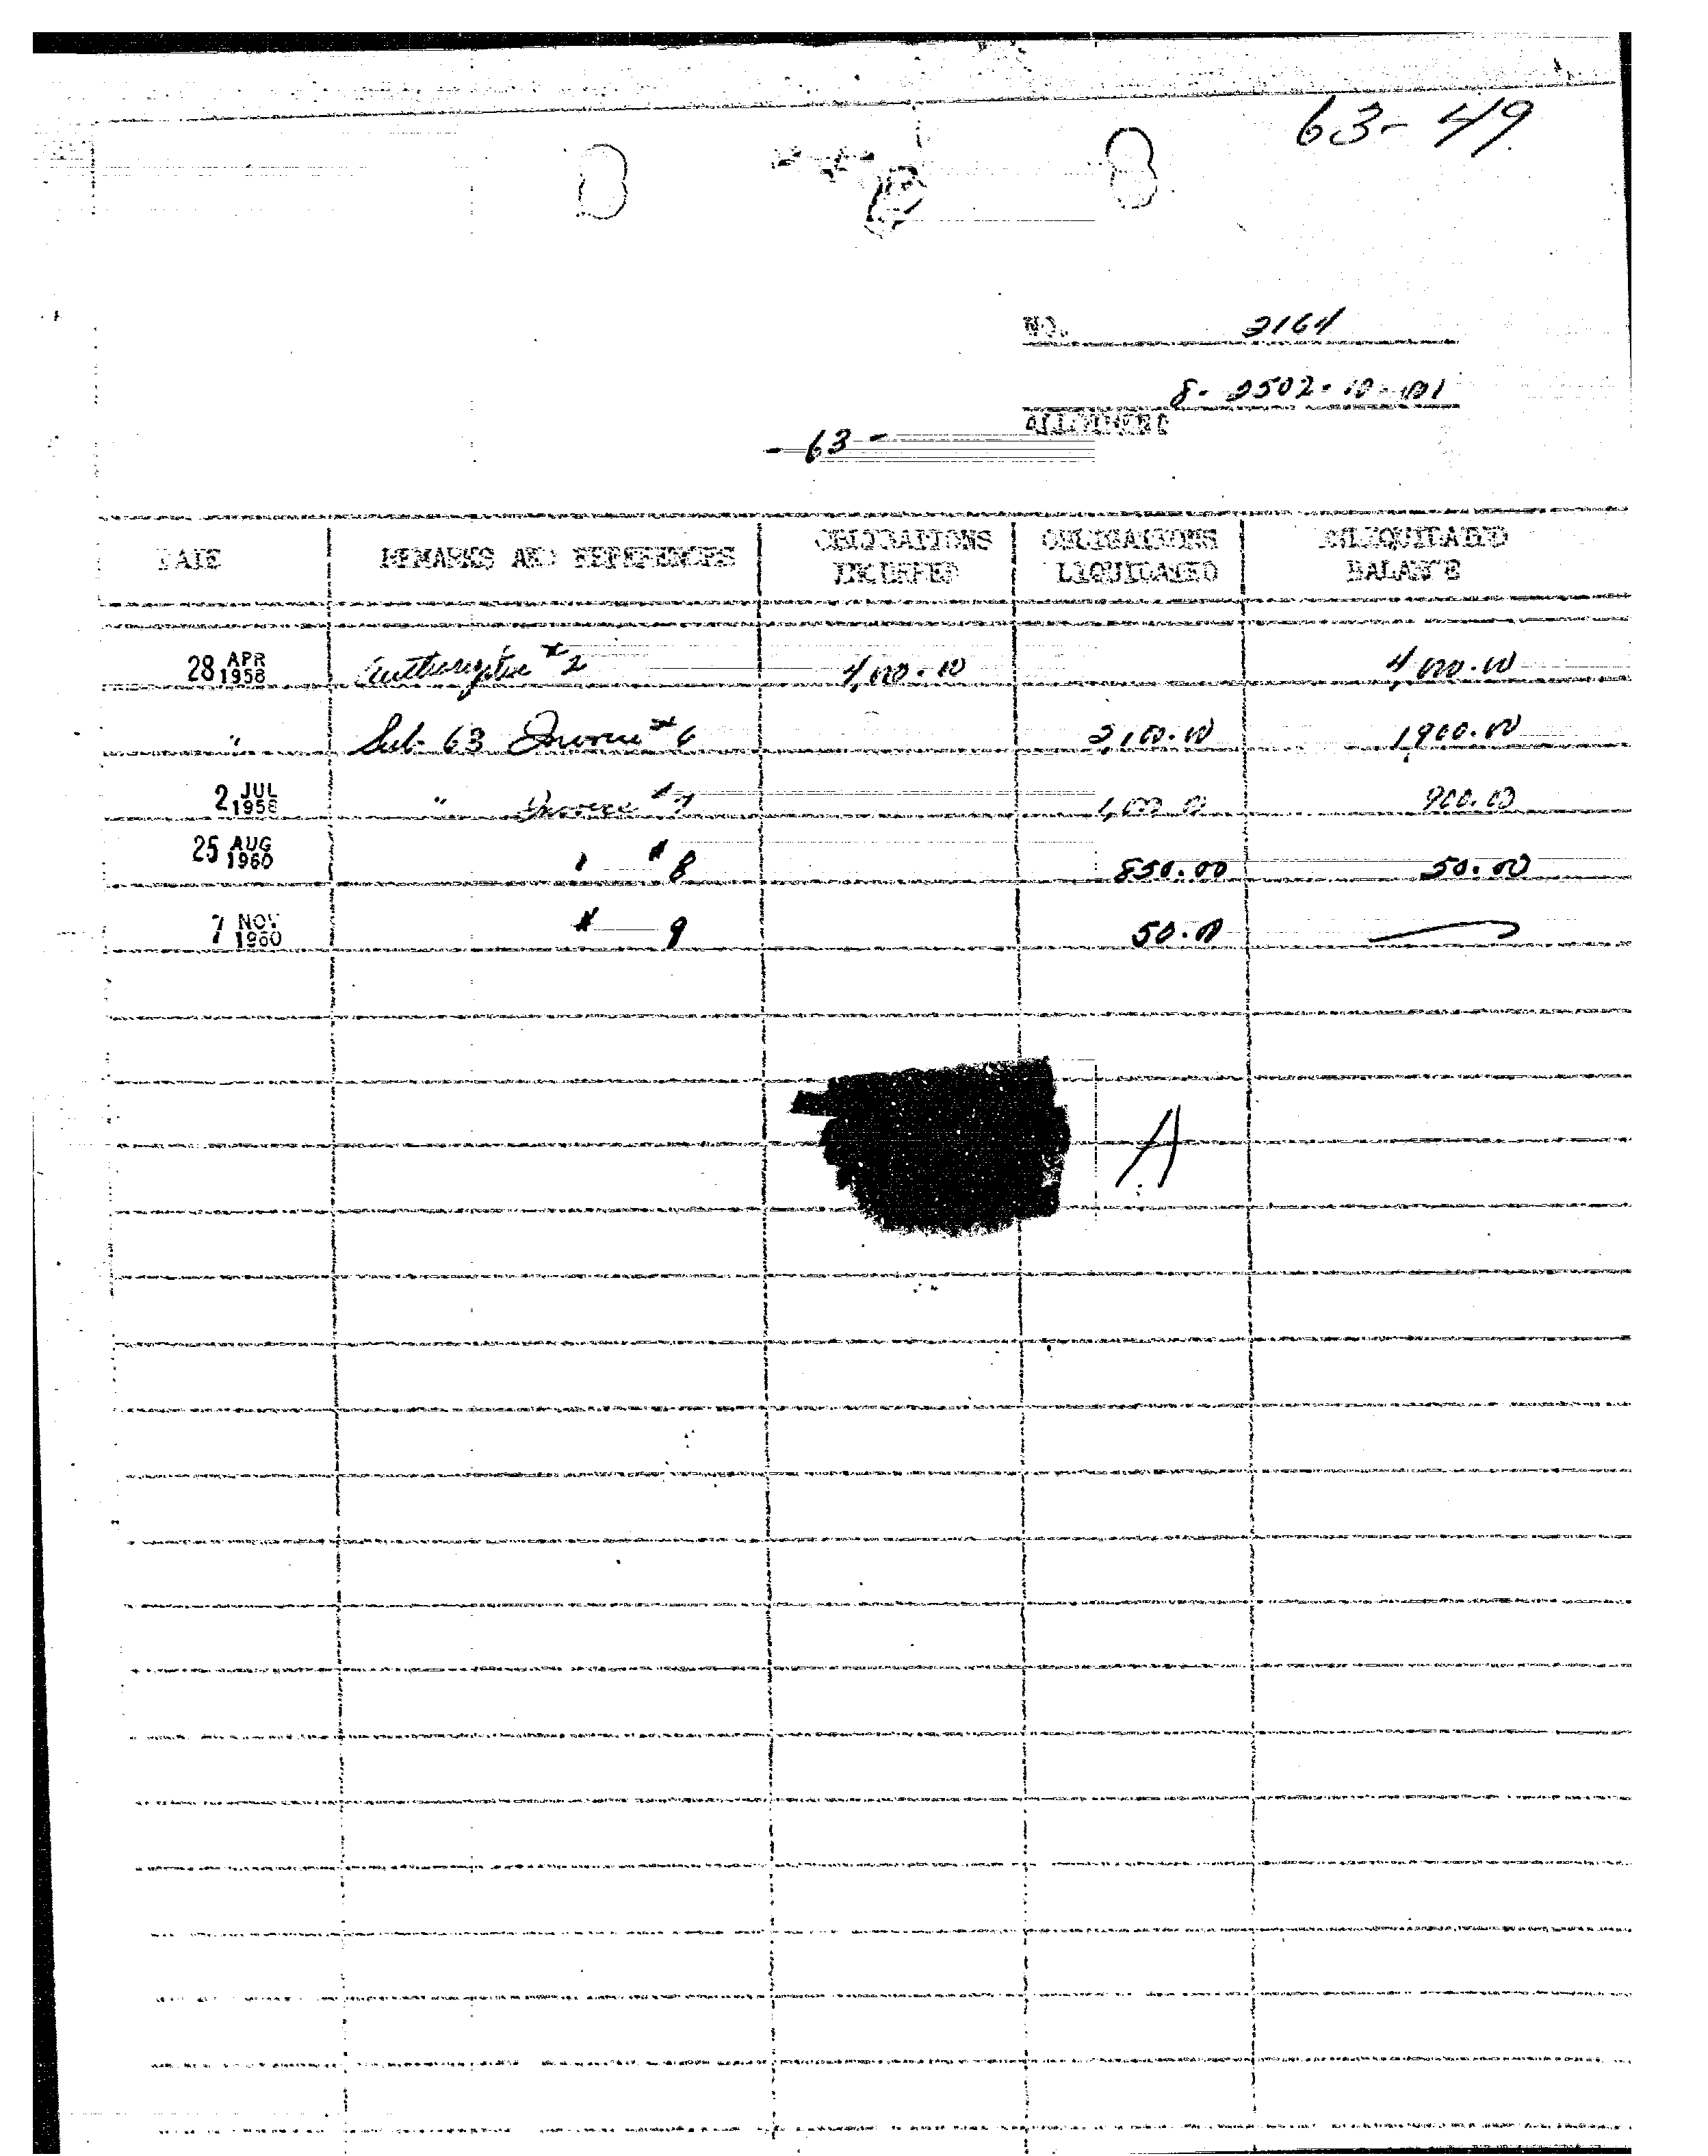 63-49
NO. 2164
8-2502-10-001
ALLOTMENT
- 63 -
DATE REMARKS AND REFERENCES OBLIGATIONS INCURRED OBLIGATIONS LIQUIDATED UNLIQUIDATED BALANCE
28 APR 1958 Authorization #2 4,000.00 4,000.00
" Sub. 63 Invoice #6 2,100.00 1900.00
2 JUL 1958 " Invoice #7 1,000.00 900.00
25 AUG 1960 " #8 850.00 50.00
7 NOV 1960 # 9 50.00
A